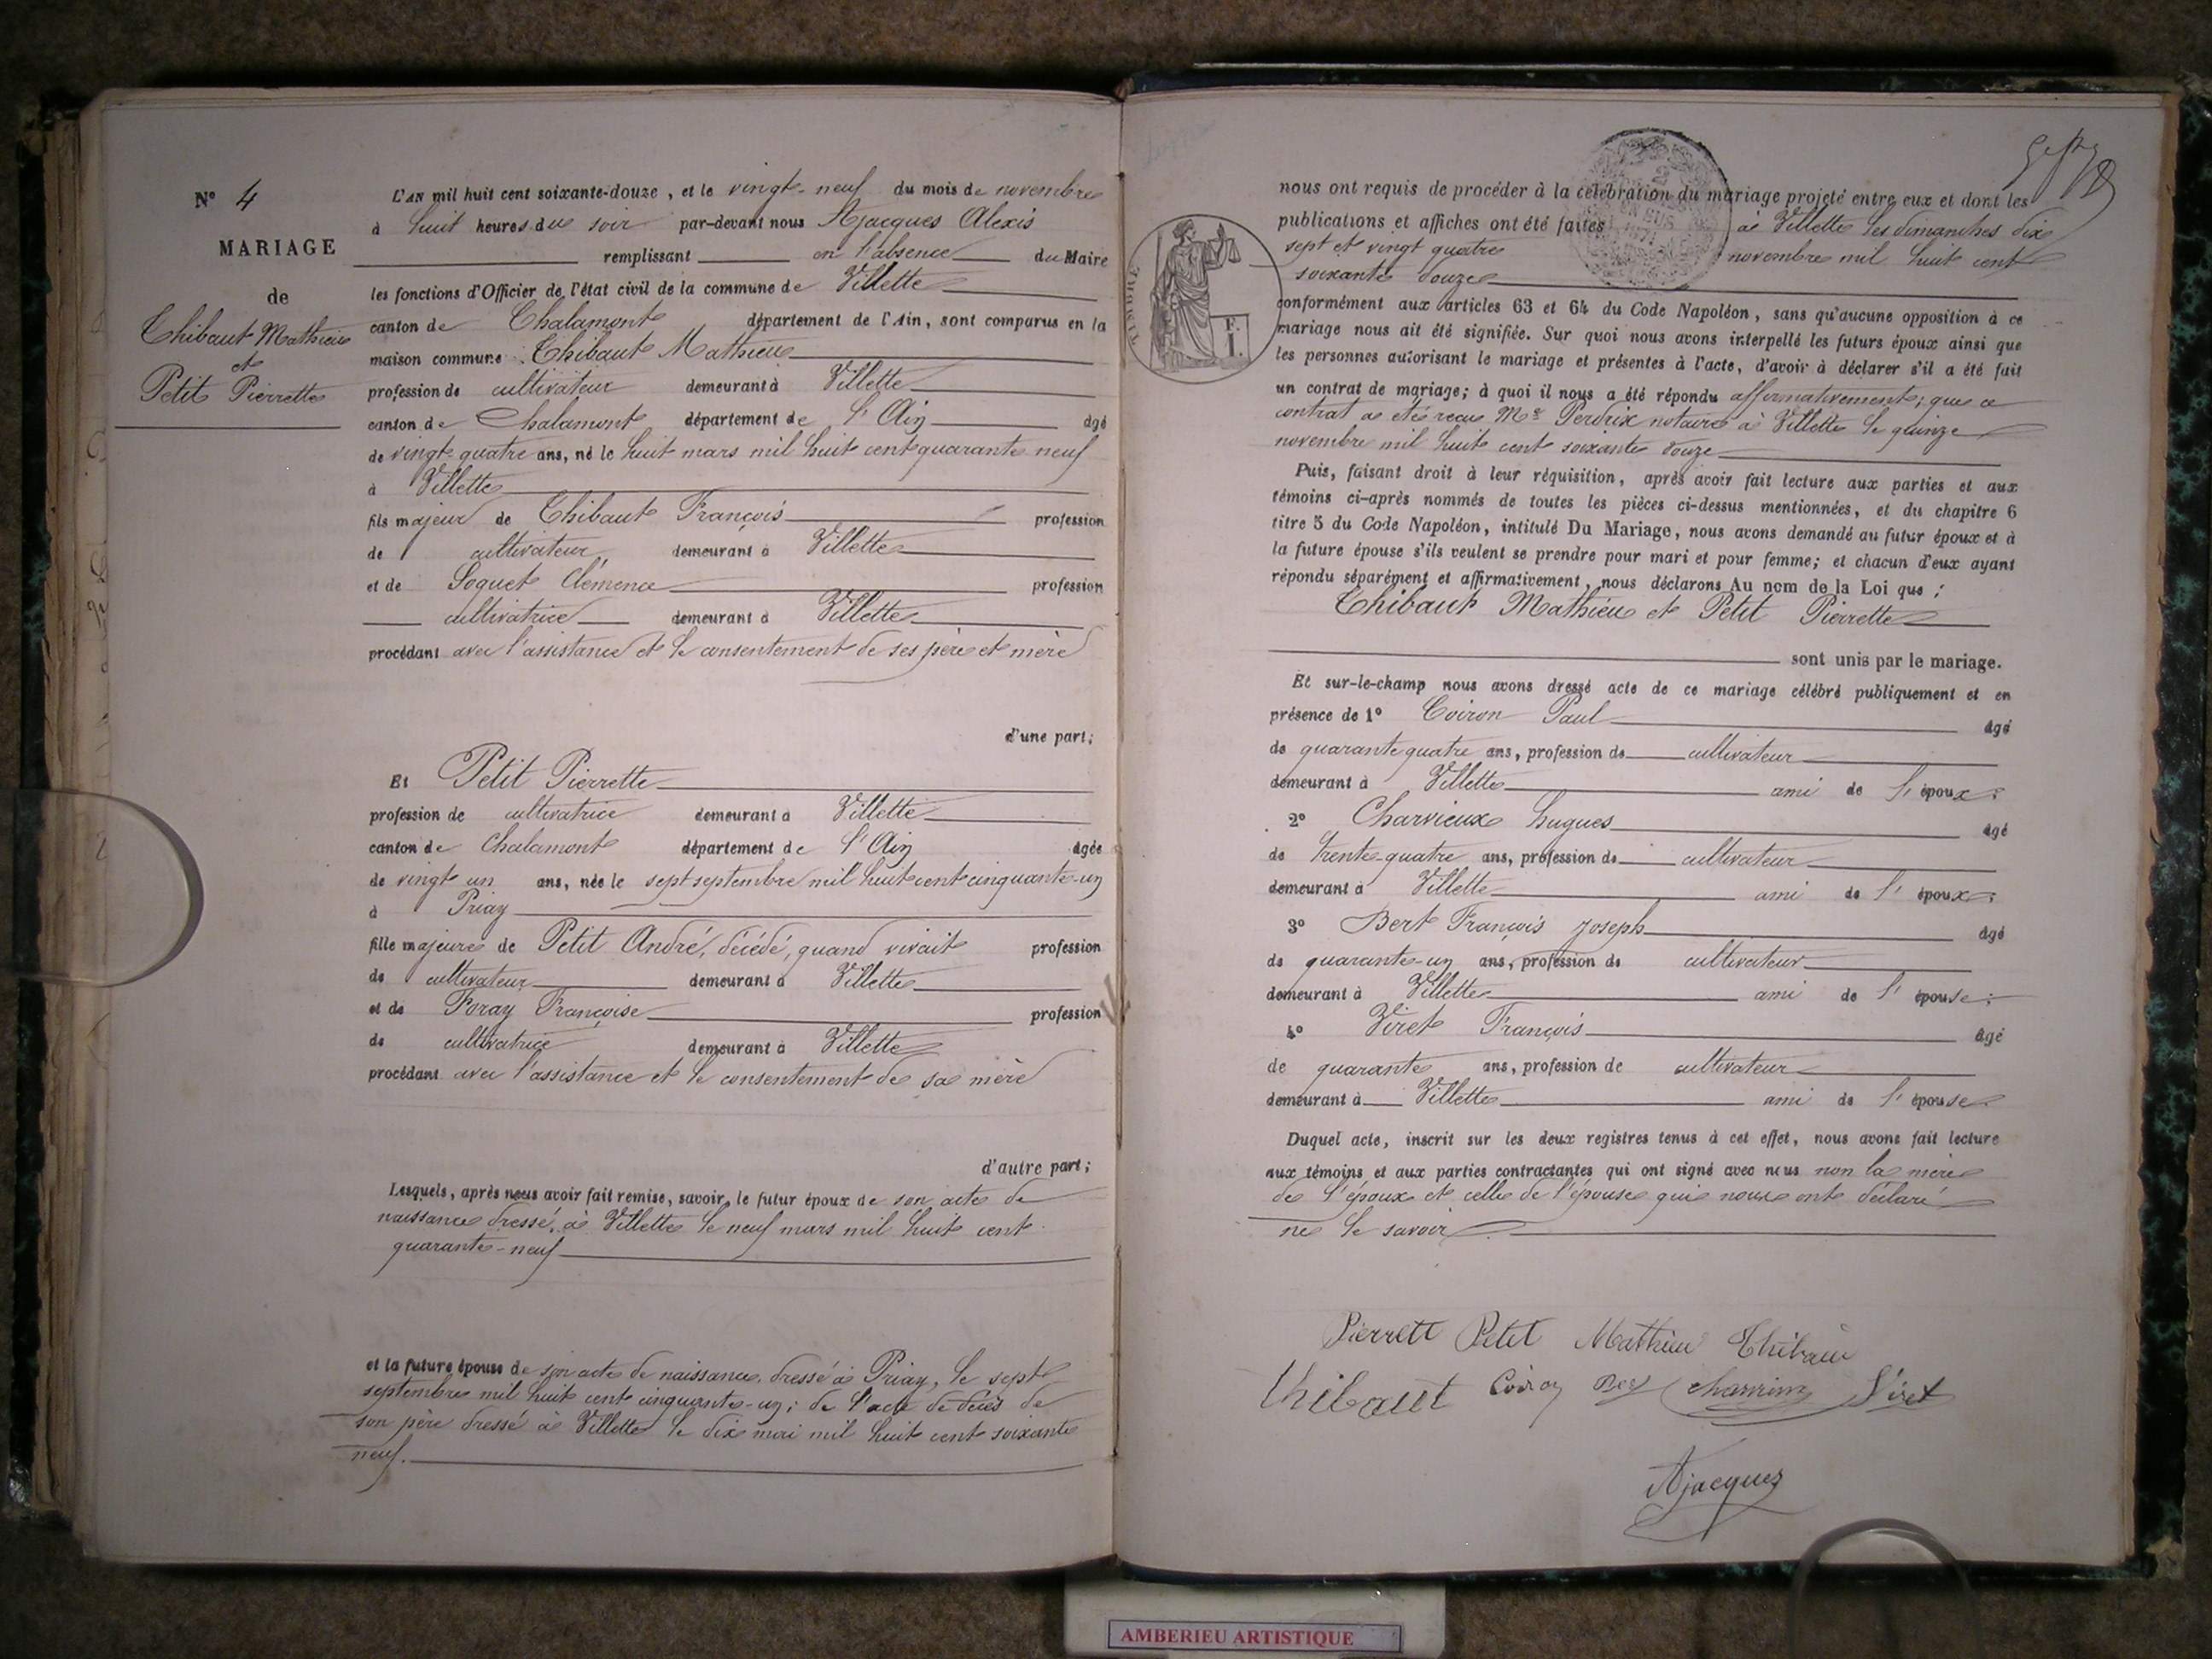 N° 4
MARIAGE
de
Thibaut Mathieu
et
Petit Pierrette
L'AN mil huit cent soixante-douze, et le vingt-neuf du mois de novembre
à huit heures du soir par-devant nous Ajacques Alexis
remplissant en l'absence du Maire
les fonctions d'Officier de l'état civil de la commune de Villette
canton de Chalamont département de l'Ain, sont comparus en la
maison commune : Thibaut Mathieu
profession de cultivateur demeurant à Villette
canton de Chalamont département de l'Ain âgé
de vingt-quatre ans, né le huit mars mil huit cent quarante neuf
à Villette
fils majeur de Thibaut François profession
de cultivateur demeurant à Villette
et de Soquet Clémence profession
cultivatrice demeurant à Villette
procédant avec l'assistance et le consentement de ses père et mère
d'une part;
Et Petit Pierrette
profession de cultivatrice demeurant à Villette
canton de Chalamont département de l'Ain âgée
de vingt un ans, née le sept septembre mil huit cent cinquante-un
à Priay
fille majeure de Petit André, décédé, quand vivait profession
de cultivateur demeurant à Villette
et de Foray Françoise profession
de cultivatrice demeurant à Villette
procédant avec l'assistance et le consentement de sa mère
d'autre part;
Lesquels, après nous avoir fait remise, savoir, le futur époux de son acte de
naissance dressé à Villette le neuf mars mil huit cent
quarante-neuf
et la future épouse de son acte de naissance, dressé à Priay, le sept
septembre mil huit cent cinquante-un; de l'acte de décès de
son père dressé à Villette le dix mai mil huit cent soixante
neuf.
nous ont requis de procéder à la célébration du mariage projeté entre eux et dont les
publications et affiches ont été faites à Villette les dimanches dix
sept et vingt quatre novembre mil huit cent
soixante douze
conformément aux articles 63 et 64 du Code Napoléon, sans qu'aucune opposition à ce
mariage nous ait été signifiée. Sur quoi nous avons interpellé les futurs époux ainsi que
les personnes autorisant le mariage et présentes à l'acte, d'avoir à déclarer s'il a été fait
un contrat de mariage; à quoi il nous a été répondu affirmativement; que ce
contrat a été reçu Me Perdrix notaire à Villette le quinze
novembre mil huit cent soixante douze
Puis, faisant droit à leur réquisition, après avoir fait lecture aux parties et aux
témoins ci-après nommés de toutes les pièces ci-dessus mentionnées, et du chapitre 6
titre 5 du Code Napoléon, intitulé Du Mariage, nous avons demandé au futur époux et à
la future épouse s'ils veulent se prendre pour mari et pour femme; et chacun d'eux ayant
répondu séparément et affirmativement, nous déclarons Au nom de la Loi que :
Thibaut Mathieu et Petit Pierrette
sont unis par le mariage.
Et sur-le-champ nous avons dressé acte de ce mariage célébré publiquement et en
présence de 1° Coiron Paul âgé
de quarante quatre ans, profession de cultivateur
demeurant à Villette ami de l'époux;
2° Charvieux Hugues âgé
de trente-quatre ans, profession de cultivateur
demeurant à Villette ami de l'époux;
3° Bert François Joseph âgé
de quarante-un ans, profession de cultivateur
demeurant à Villette ami de l'épouse;
4° Viret François âgé
de quarante ans, profession de cultivateur
demeurant à Villette ami de l'épouse
Duquel acte, inscrit sur les deux registres tenus à cet effet, nous avons fait lecture
aux témoins et aux parties contractantes qui ont signé avec nous non la mère
de l'époux et celle de l'épouse qui nous ont déclaré
ne le savoir
Pierrett Petit Mathieu Thibaut
Thibaut Coiron Bert Viret
Ajacques
F.
I.
AMBERIEU ARTISTIQUE